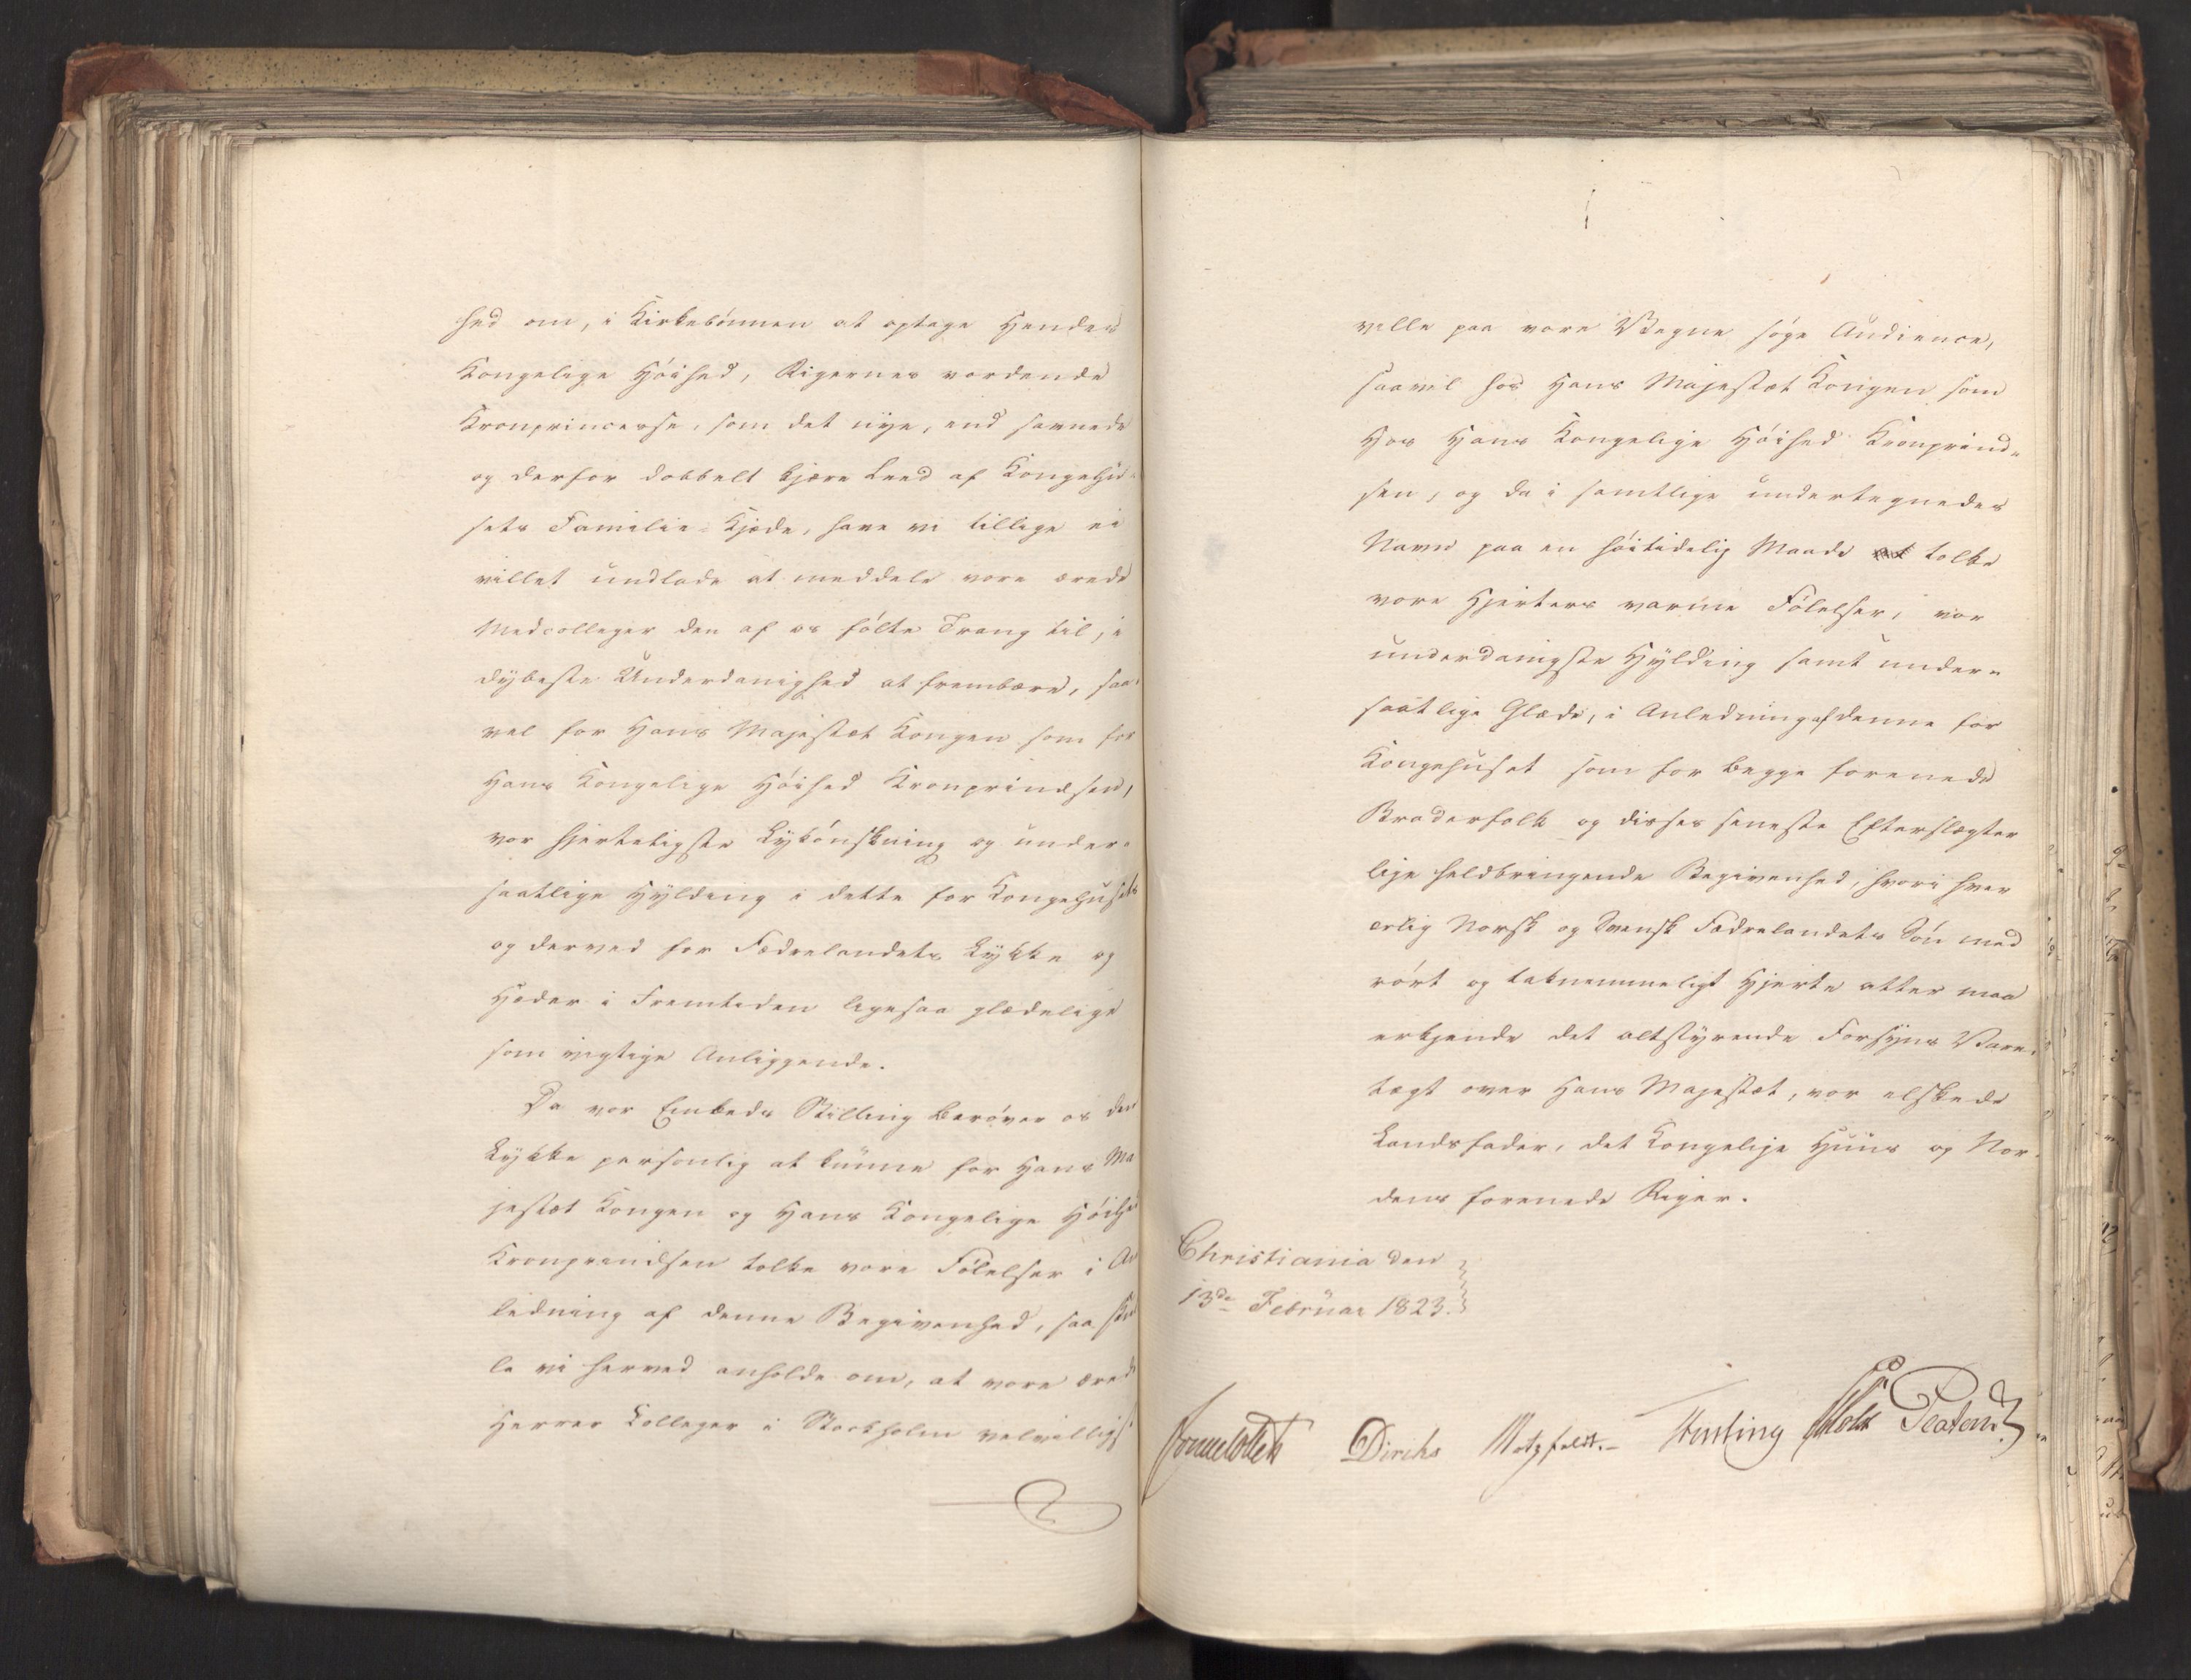 hed om, i Kirkebönnen at optage Hendes
Kongelige Höihed, Rigernes vordende
Kronprincesse, som det nye, end savnede
og derfor dobbelt kjære Leed af Kongehu-
sets Familie-Kjæde, have vi tillige ei
villet undlade at meddele vore ærede
Medcolleger den af os fölte Trang til, i
dybeste Underdanighed at frembære, saa-
vel for Hans Majestæt Kongen som for
Hans Kongelige Höihed Kronprindsen,
vor hjerteligste Lykönskning og under-
saatlige Hylding i dette for Kongehusets
og derved for Fædrelandets Lykke og
Hæder i Fremtiden ligesaa glædelige
som vigtige Anliggende.
Da vor Embeds Stilling beröver os den
Lykke personlig at kunne for Hans Ma
jestæt Kongen og Hans Kongelige Höihed
Kronprindsen tolke vore Fölelser i An
ledning af denne Begivenhed, saa skul
le vi herved anholde om, at vore ærede
Herrer Colleger i Stockholm velvilligst
ville paa vore Vegne söge Audience,
saavel hos Hans Majestæt Kongen som
Hos Hans Kongelige Höihed Kronprind-
sen, og da i samtlige undertegnedes
Navn paa en höitidelig Maade at tolke
vore Hjerters varme Fölelser, vor
underdanigste Hylding samt under-
saatlige Glæde, i Anledning af denne for
Kongehuset som for begge forenede
Broderfolk og disses seneste Efterslægter
lige heldbringende Begivenhed, hvori hver
ærlig Norsk og Svensk Fædrelandets Sön med
rört og taknemmeligt Hjerte atter maa
erkjende det altstyrende Forsyns Vare-
tægt over Hans Majestæt, vor elskede
Landsfader, det Kongelige Huus og Nor-
dens forenede Riger.
Christiania den
13de Februar 1823.
Sommerhielm Diriks Motzfeldt. Hesting Holst Platou